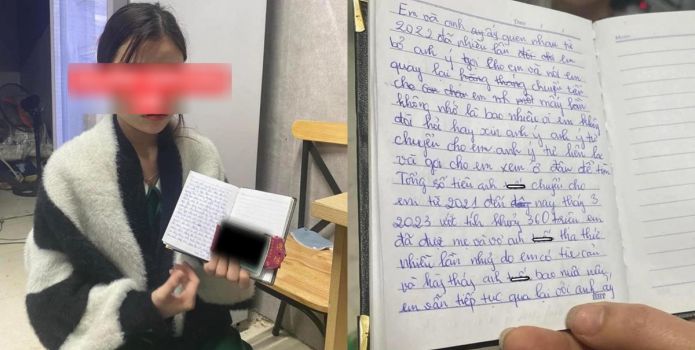 Em và anh ay ấy quen nhau từ
2022 đã nhiều lần em
bỏ anh ý gọi cho em và nói em
quay lại chuyện tiền
cho em mấy lần
không nhớ là bao nhiêu vì em không
đòi hỏi hay xin anh ý anh ý tự
chuyển cho em anh ý tự liên lạc
và gọi cho em xem ở đâu để tìm
Tổng số tiền anh chuyển cho
em từ 2021 đến nay tháng 3
2023 với tính khoảng 360 triệu em
đã được mẹ và vợ anh tha thứ
nhiều lần nhưng do em có tư cản
và thấy anh bao nuôi
em vẫn tiếp tục qua lại với anh ấy